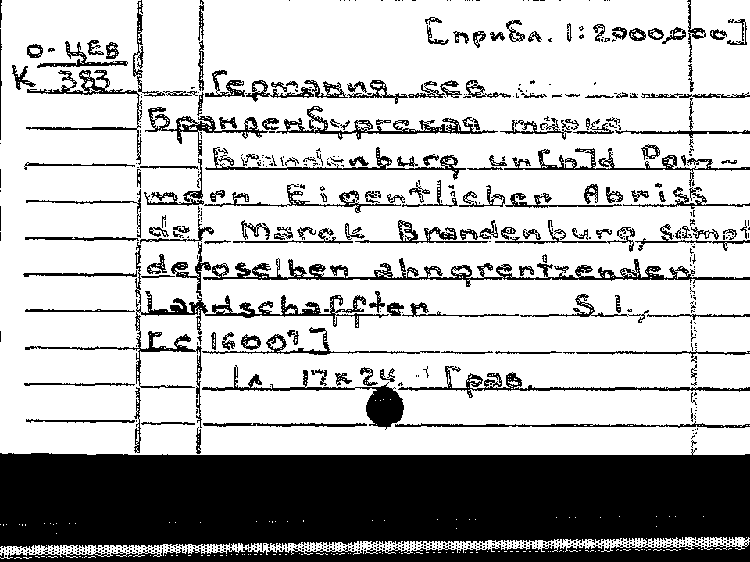 [прибл. 1:2000,000]
О-ЦЕВ
К 383
Германия, сев
Бранденбургская марка
Brandenburg un[n]d Pom-
mern. Eigentlicher Abriss
der Marck Brandenburg, sampt
deroselben ahngrentzenden
Landschafften. S. l.,
[c 1600?]
1 л. 17х24. Грав.